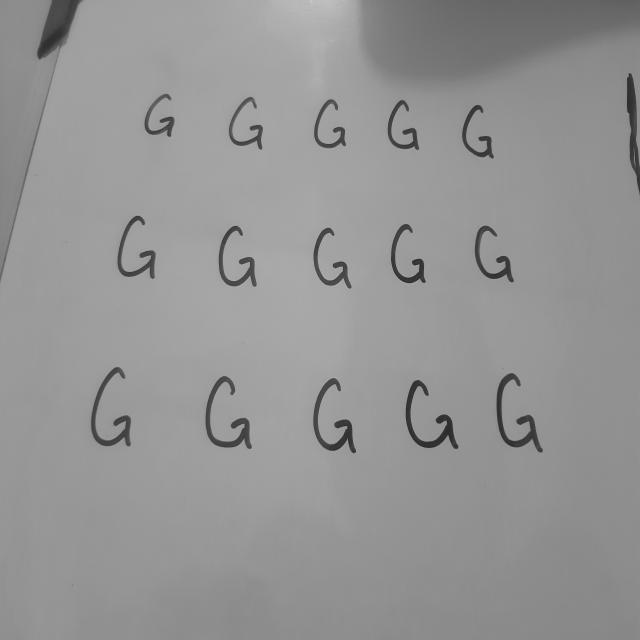 G G G G G
G G G G G
G G G G G